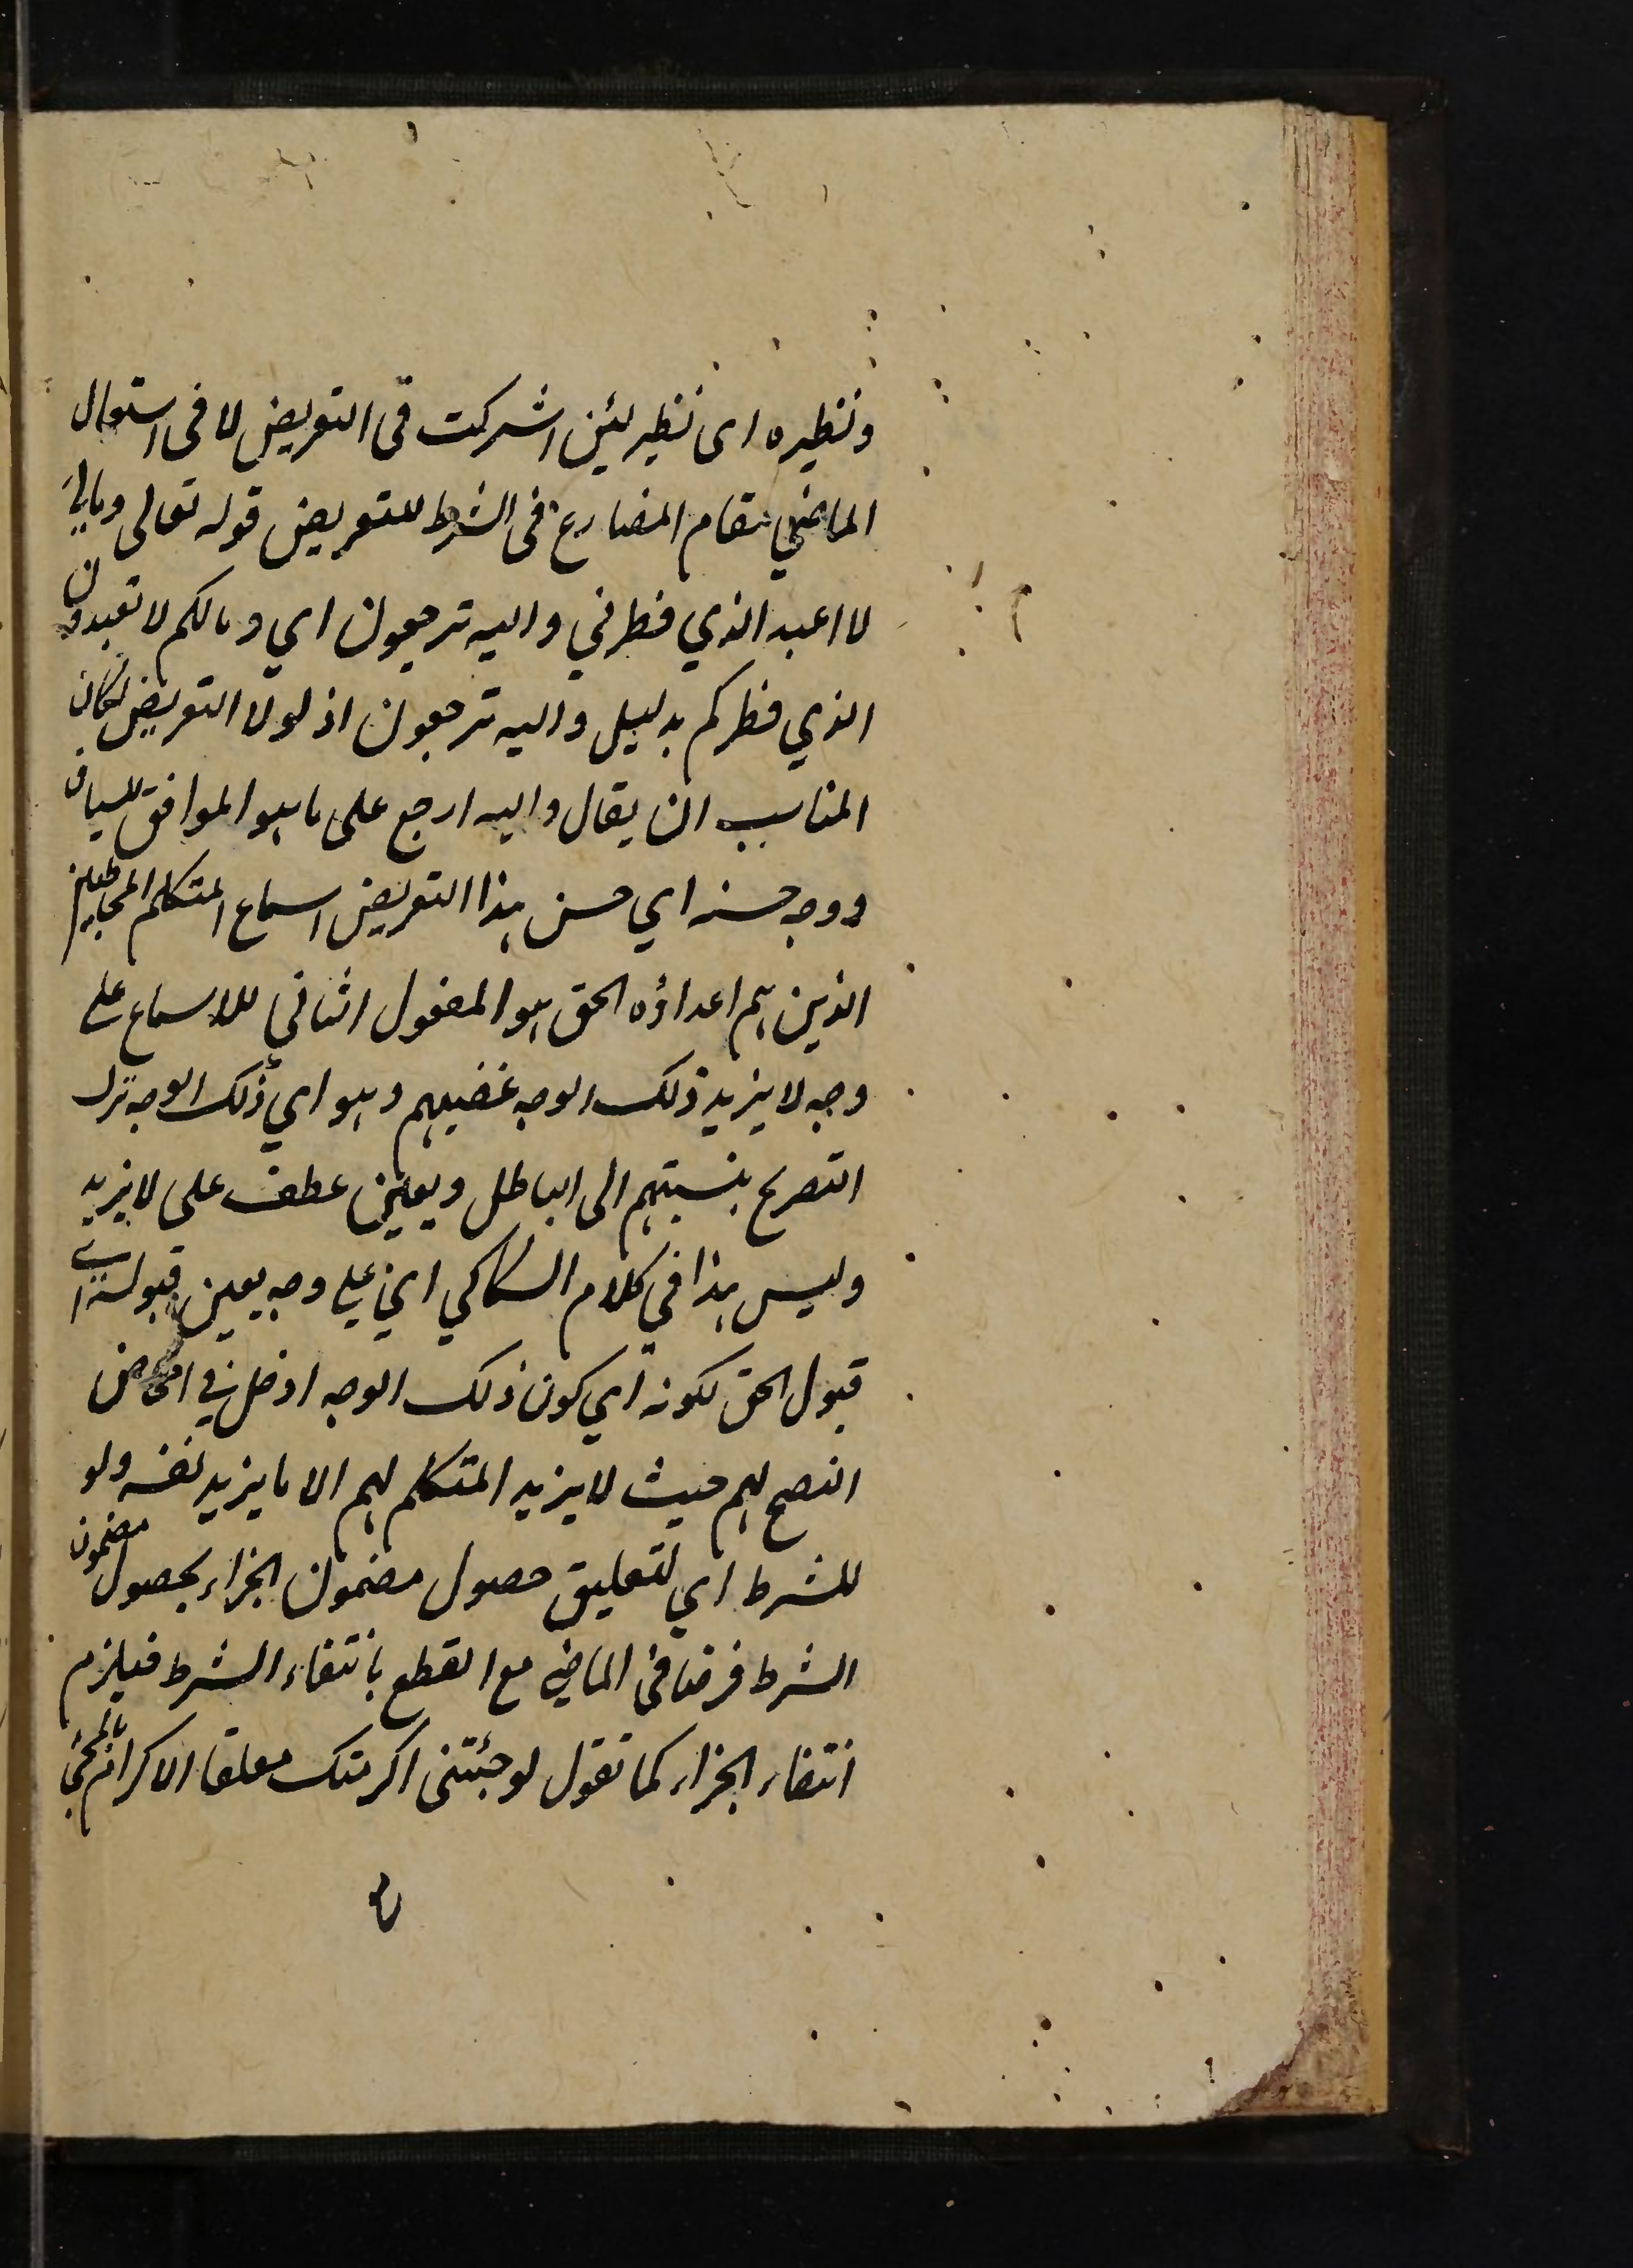 ونظيره اى نظير لئن اشركت فى التعريض لا فى استعمال
الماضي مقام المضارع فى الشرط للتعريض قوله تعالى ومالي
لا اعبد الذي فطرني واليه ترجعون اي ومالكم لا تعبدون
الذي فطركم بدليل واليه ترجعون اذ لولا التعريض لكان
المناسب ان يقال واليه ارجع على ما هو الموافق للسياق
ووجه حسنه اي حسن هذا التعريض اسماع المتكلم المخاطبين
الذين هم اعداؤه الحق هو المفعول الثاني للاسماع على
وجه لا يزيد ذلك الوجه غضبهم وهو اي ذلك الوجه ترك
التصريح بنسبتهم الى الباطل ويعين عطف على لا يزيد
وليس هذا في كلام السكاكي اي على وجه يعين قبوله اي
قبول الحق لكونه اي كون ذلك الوجه ادخل في امحاض
النصح لهم حيث لا يزيد المتكلم لهم الا ما يزيد لنفسه ولو
للشرط اي لتعليق حصول مضمون الجزاء بحصول مضمون
الشرط فرضا فى الماضي مع القطع بانتفاء الشرط فيلزم
انتفاء الجزاء كما تقول لو جئتنى اكرمتك معلقا الاكرام بالمجئ